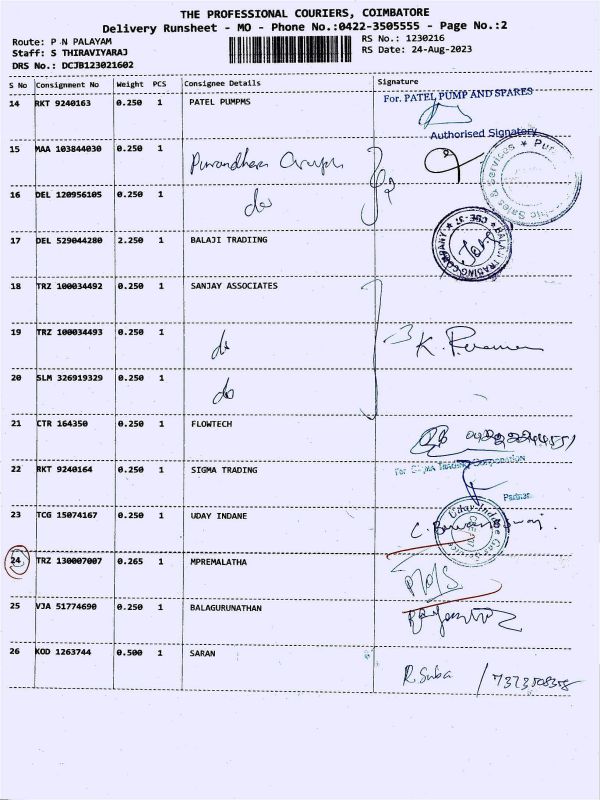 THE PROFESSIONAL COURIERS, COIMBATORE
Delivery Runsheet - MO - Phone No.:0422-3505555 - Page No.:2
Route: P N PALAYAM
RS No.: 1230216
Staff: S THIRAVIYARAJ
RS Date: 24-Aug-2023
DRS No.: DCJB123021602
S No Consignment No Weight PCS Consignee Details Signature
14 RKT 9240163 0.250 1 PATEL PUMPMS
For. PATEL PUMP AND SPARES
Authorised Signatory
15 MAA 103844030 0.250 1
16 DEL 120956105 0.250 1 do
17 DEL 529044280 2.250 1 BALAJI TRADIING
BALAJI TRADING COMPANY * CBE-37 *
18 TRZ 100034492 0.250 1 SANJAY ASSOCIATES
19 TRZ 100034493 0.250 1 do
20 SLM 326919329 0.250 1 do
21 CTR 164350 0.250 1 FLOWTECH
22 RKT 9240164 0.250 1 SIGMA TRADING
For SIGMA TRADING Corporation
Partner
23 TCG 15074167 0.250 1 UDAY INDANE
24 TRZ 130007007 0.265 1 MPREMALATHA
25 VJA 51774690 0.250 1 BALAGURUNATHAN
26 KOD 1263744 0.500 1 SARAN
R. Suba / 7373508358